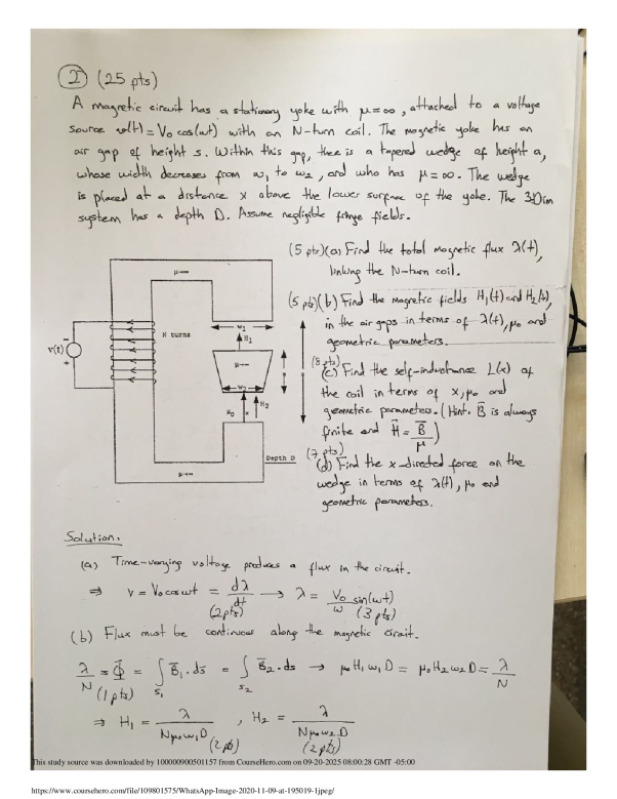 2 (25 pts)
A magnetic circuit has a stationary yoke with μ=∞, attached to a voltage
source v(t) = V₀ cos(ωt) with an N-turn coil. The magnetic yoke has an
air gap of height s. Within this gap, there is a tapered wedge of height a,
whose width decreases from w₁ to w₂, and who has μ=∞. The wedge
is placed at a distance x above the lower surface of the yoke. The 3Dim
system has a depth D. Assume negligible fringe fields.
(5 pts)(a) Find the total magnetic flux λ(t),
linking the N-turn coil.
(5 pts)(b) Find the magnetic fields H₁(t) and H₂(t),
in the air gaps in terms of λ(t), μ₀ and
geometric parameters.
(8 pts)
(c) Find the self-inductance L(x) of
the coil in terms of x, μ₀ and
geometric parameters. (Hint. B̄ is always
finite and H̄ = B̄/μ)
(7 pts)
(d) Find the x-directed force on the
wedge in terms of λ(t), μ₀ and
geometric parameters.
μ→∞
N turns
v(t)
w₁
H₁
μ→∞
w₂
H₂
x
Depth D
μ→∞
Solution.
(a) Time-varying voltage produces a flux in the circuit.
⇒ v = V₀ cos ωt = dλ/dt → λ = V₀/ω sin(ωt)
(2pts) (3 pts)
(b) Flux must be continuous along the magnetic circuit.
λ/N = Φ = ∫S₁ B̄₁·ds̄ = ∫S₂ B̄₂·ds → μ₀H₁w₁D = μ₀H₂w₂D = λ/N
(1 pts)
⇒ H₁ = λ/(Nμ₀w₁D) , H₂ = λ/(Nμ₀w₂D)
(2 pts) (2 pts)
This study source was downloaded by 100000900501157 from CourseHero.com on 09-20-2025 08:00:28 GMT -05:00
https://www.coursehero.com/file/109801575/WhatsApp-Image-2020-11-09-at-195019-1jpeg/